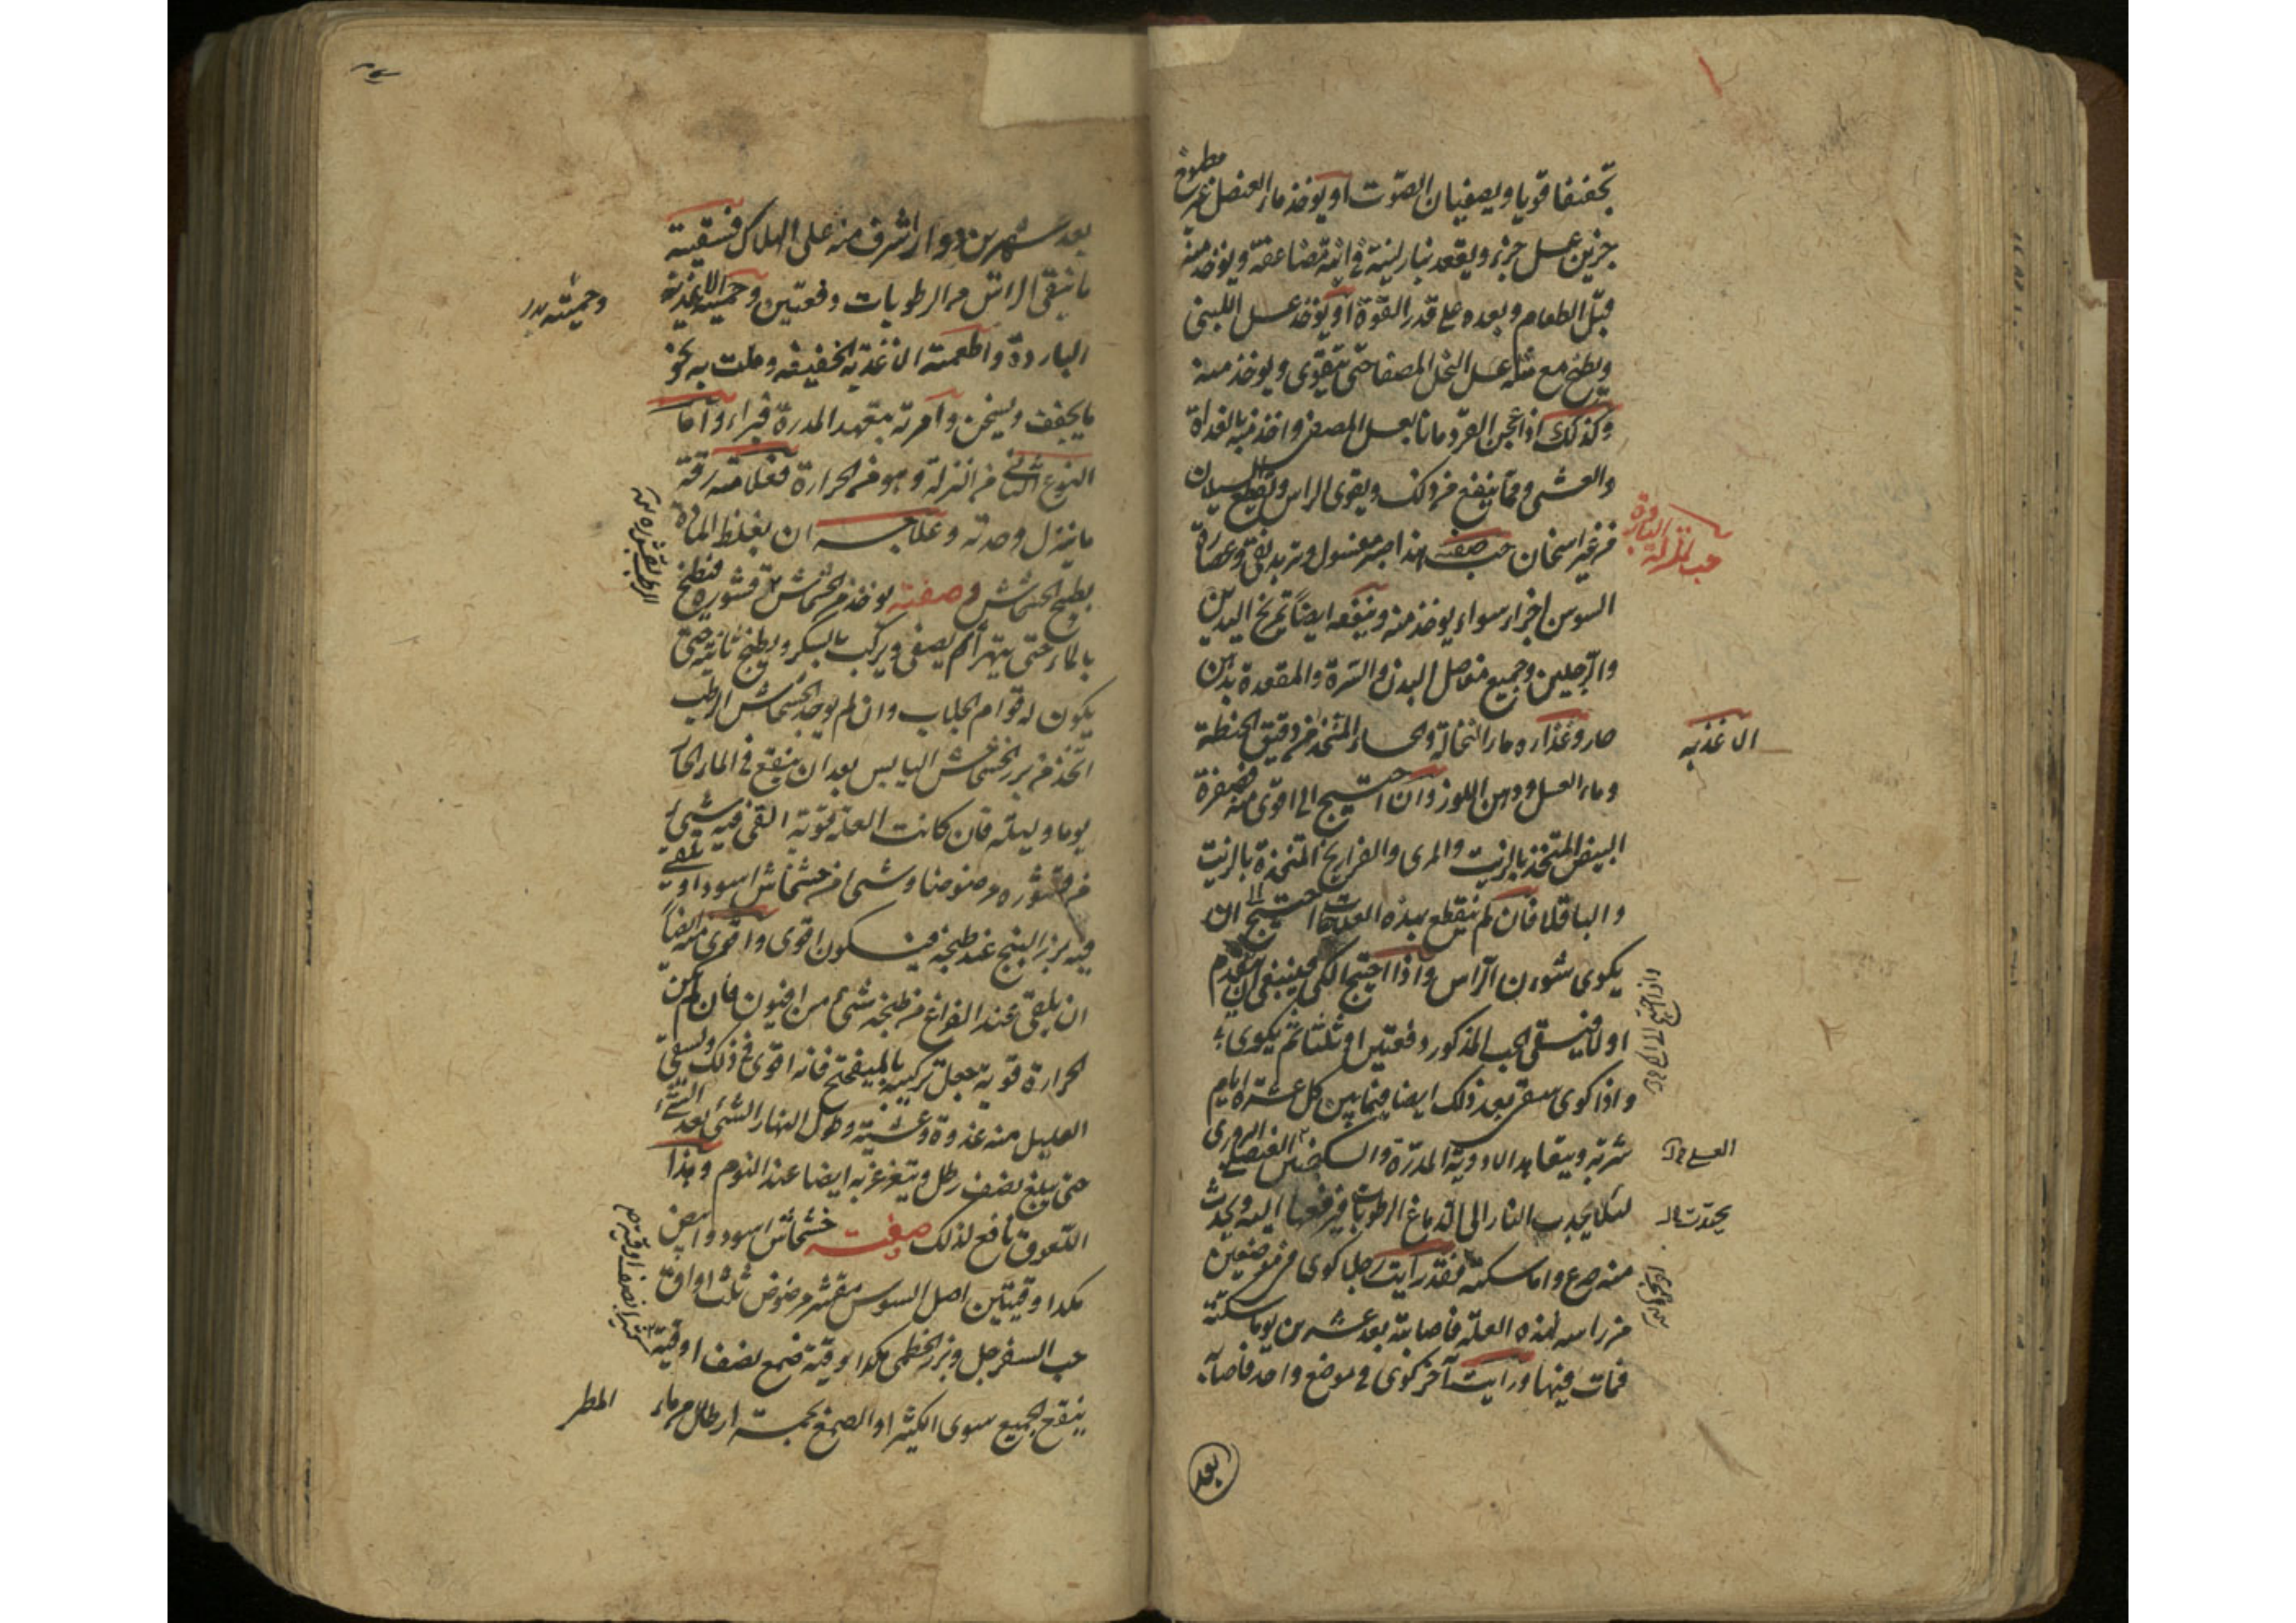 تجفيفا قويا ويصفيان الصوت او يوخذ ماء العنصل غير مطبوخ
جزين عسل جزء ويقعد بنار لينة في انية مضاعفة ويوخذ منه
قبل الطعام وبعده على قدر القوة او يوخذ عسل اللبنى
ويطبخ مع مثله عسل النحل المصفا حتى يتقوى ويوخذ منه
وكذلك اذا عجن القردمانا بعسل المصفى واخذ منه بالغداة
والعشى ومما ينفع من ذلك ويقوى الراس ويقطع السيلان
من غير اسخان حب صفته هذا صبر مغسول وتربد نقى وعصارة
حب للنزلة الباردة
السوس اجزاء سواء يوخذ منه وينفعه ايضاً تمريخ اليدين
والرجلين وجميع مفاصل البدن والسرة والمقعدة بدهن
حار وغذاره ماء النخالة والحساء المتخذ من دقيق الحنطة
الاغذيه
وماء العسل ودهن اللوز وان احتيج الى اقوى منه فصفرة
البيض المتخذ بالزيت والمرى والفراريخ المتخذة بالزيت
والباقلا فان لم ينقطع بهذه العلاجات احتيج الى ان
يكوى شوءن الراس واذا احتيج الكى فينبغى ان يتقدم
اولا فيسقى الحب المذكور دفعتين او ثلثا ثم يكوى
واذا كوى سقى بعد ذلك ايضا فيما بين كل عشرة ايام
شربة ويتعاهد الادوية المدرة والسكنجبين العنصلى البزورى
لئلا يجذب النار الى الدماغ الرطوبات فيرفعها اليه ويحدث
منه صرع واما سكتة فقد رايت رجلا كوى فى موضعين
من راسه لهذه العلة فاصابته بعد عشرين يوما سكتة
فمات فيها ورايت آخر كوى فى موضع واحد فاصابه
بعد
بعد شهرين دوار اشرف منه على الهلاك فسقيته
ما ينقى الراس من الرطوبات دفعتين وحميته الاغذية
وحميته
الباردة واطعمته الاغذية الخفيفه وملت به نحو
ما يجفف ويسخن وامرته بتعهد المدرة فبراء واما
النوع الثانى من النزلة وهو من الحرارة فعلامته رقة
ما ينزل وحدته وعلاجه ان يغلظ المادة
بطبيخ الخشخاش وصفته يوخذ من الخشخاش بقشوره فيطبخ
بالماء حتى يتهرأ ثم يصفى ويركب بالسكر ويطبخ ثانية حتى
يكون له قوام الجلاب وان لم يوجد الخشخاش الرطب
اتخذ من بزر الخشخاش اليابس بعد ان ينقع فى الماء الحار
يوما وليلة فان كانت العلة قوية القى فيه شئ
من قشوره مرضوضا وشئ من خشخاش اسود او يلقى
فيه بزر البنج عند طبخه فيكون اقوى واقوى منه ايضاً
ان يلقى عند الفراغ من طبخه شئ من افيون فان لم تكن
الحرارة قوية تجعل تركيبه بالميفختج فانه اقوى فى ذلك ويسقى
العليل منه غدوة وعشية وطول النهار الشئ بعد الشئ
حتى يبلغ نصف رطل ويتغرغر به ايضا عند النوم وهذا
اللعوق نافع لذلك صفته خشخاش اسود وابيض
مكدا وقيتين اصل السوس مقشر مرضوض ثلث اواق
حب السفرجل وبزر الخطمى مكدا اوقية صمغ نصف اوقية
ينقع الجميع سوى الكثيرا والصمغ بخمسة ارطال من ماء
المطر